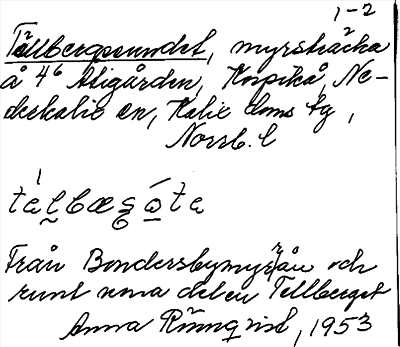 1-2
Tällbergssundet, myrsträcka
å 4⁶ Stigården, Korpikå, Ne-
derkalix en, Kalix doms tg,
Norrb. l
Från Bondersbymyrån och
runt norra delen Tällberget
Anna Rönnqvist, 1953